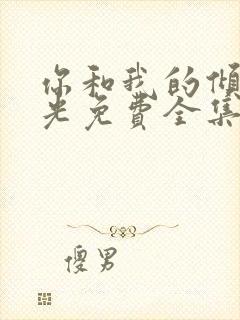 你和我的倾
光免费全集
傻男